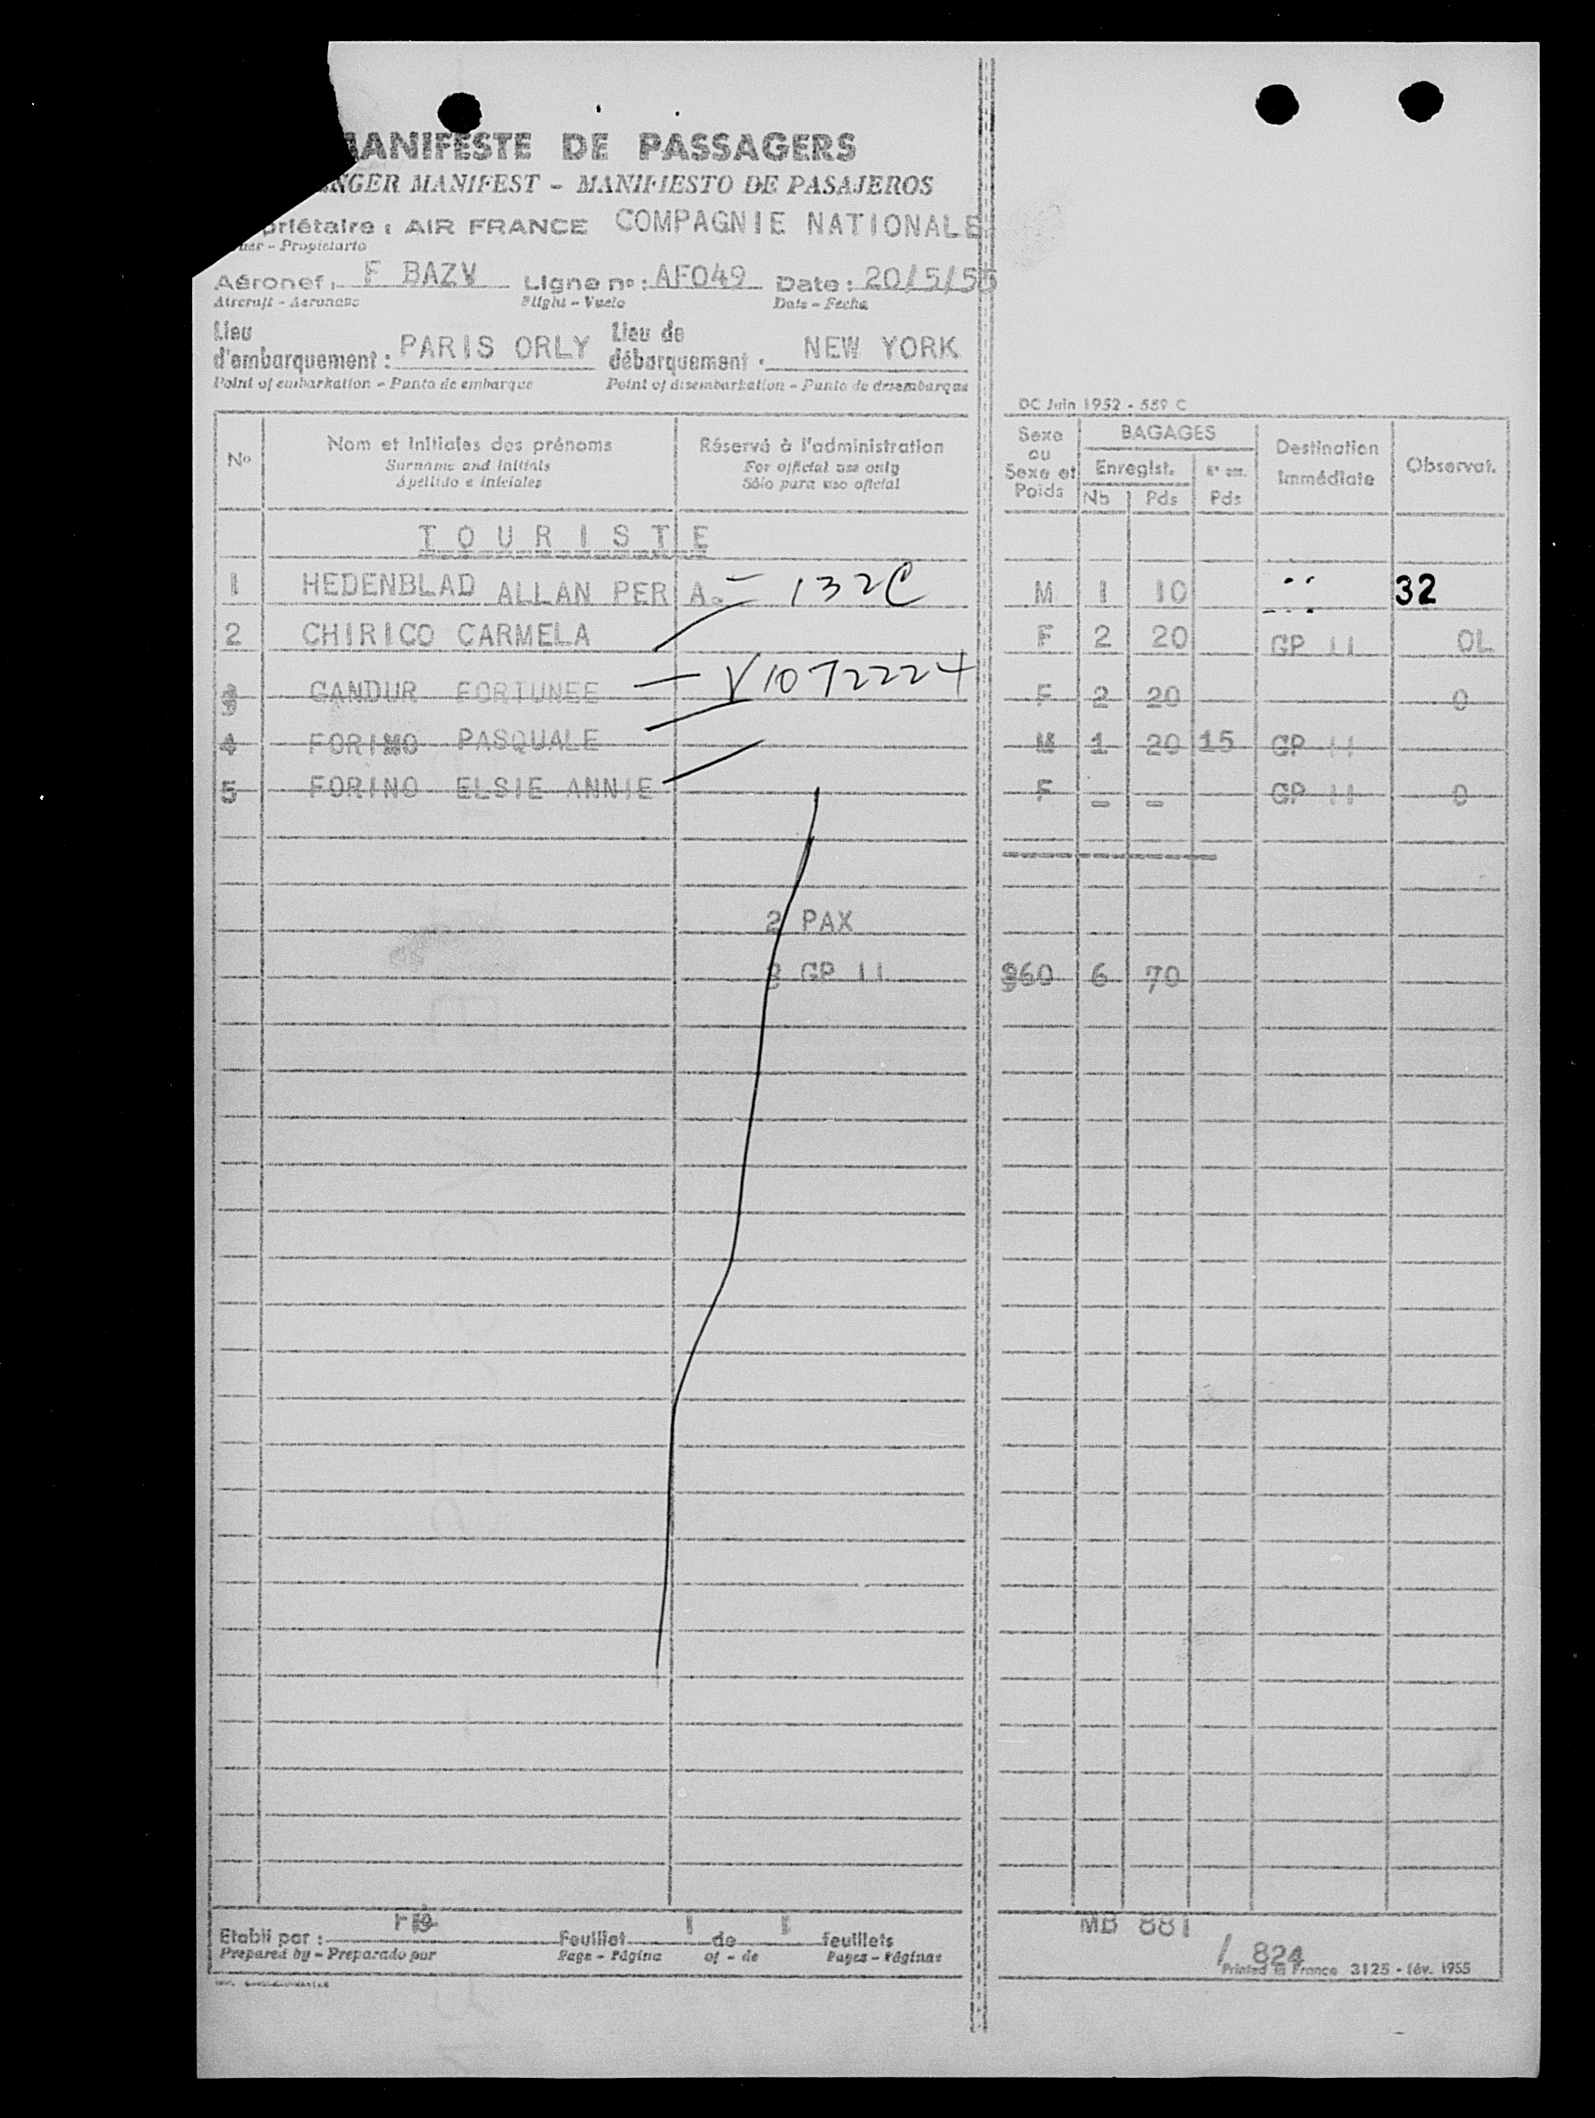 MANIFESTE DE PASSAGERS
NGER MANIFEST - MANIFIESTO DE PASAJEROS
priétaire : AIR FRANCE COMPAGNIE NATIONALE
ner - Propietario
Aéronef : F BAZV Ligne no : AF049 Date : 20/5/55
Aircraft - Aeronave Flight - Vuelo Date - Fecha
Lieu d'embarquement : PARIS ORLY Lieu de débarquement : NEW YORK
Point of embarkation - Punto de embarque Point of disembarkation - Punto de desembarque
DC Juin 1952 - 559 C
No Nom et initiales des prénoms Réservé à l'administration Sexe ou Sexe et Poids BAGAGES Destination Immédiate Observat.
Surname and initials For official use only Enregist.
Apellido e iniciales Sólo para uso oficial Nb Pds Pds
TOURISTE
1 HEDENBLAD ALLAN PER A. - 132C M 1 10 32
2 CHIRICO CARMELA F 2 20 GP 11 OL
3 GANDUR FORTUNEE - V1072224 F 2 20 0
4 FORINO PASQUALE M 1 20 15 GP 11
5 FORINO ELSIE ANNIE F - - GP 11 0
2 PAX
3 GP 11 360 6 70
Etabli par : Feuillet 1 de 1 feuillets MB 881
Prepared by - Preparado por Page - Página of - de Pages - Páginas
1 824
Printed in France 3125 - fév. 1955